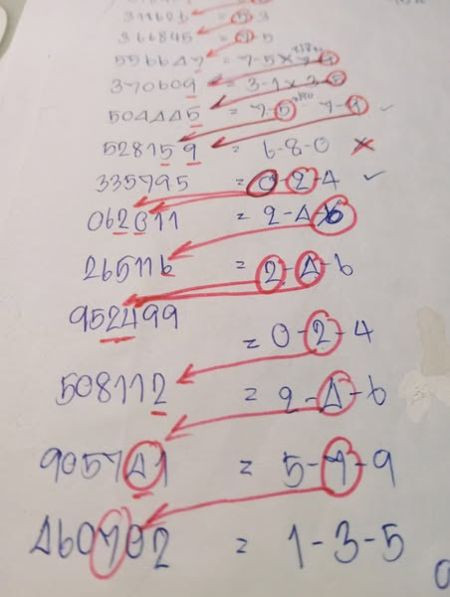 311626 = 5-3
366845 = 9-5
556647 = 7-5x7-9
370609 = 3-1x3-5
504445 = 7-5 7-9 ✓
528159 = 6-8-0 ✗
335795 = 0-2-4 ✓
062011 = 2-4-6
265116 = 2-4-6
952499
= 0-2-4
508112 = 2-4-6
905741 = 5-7-9
460702 = 1-3-5